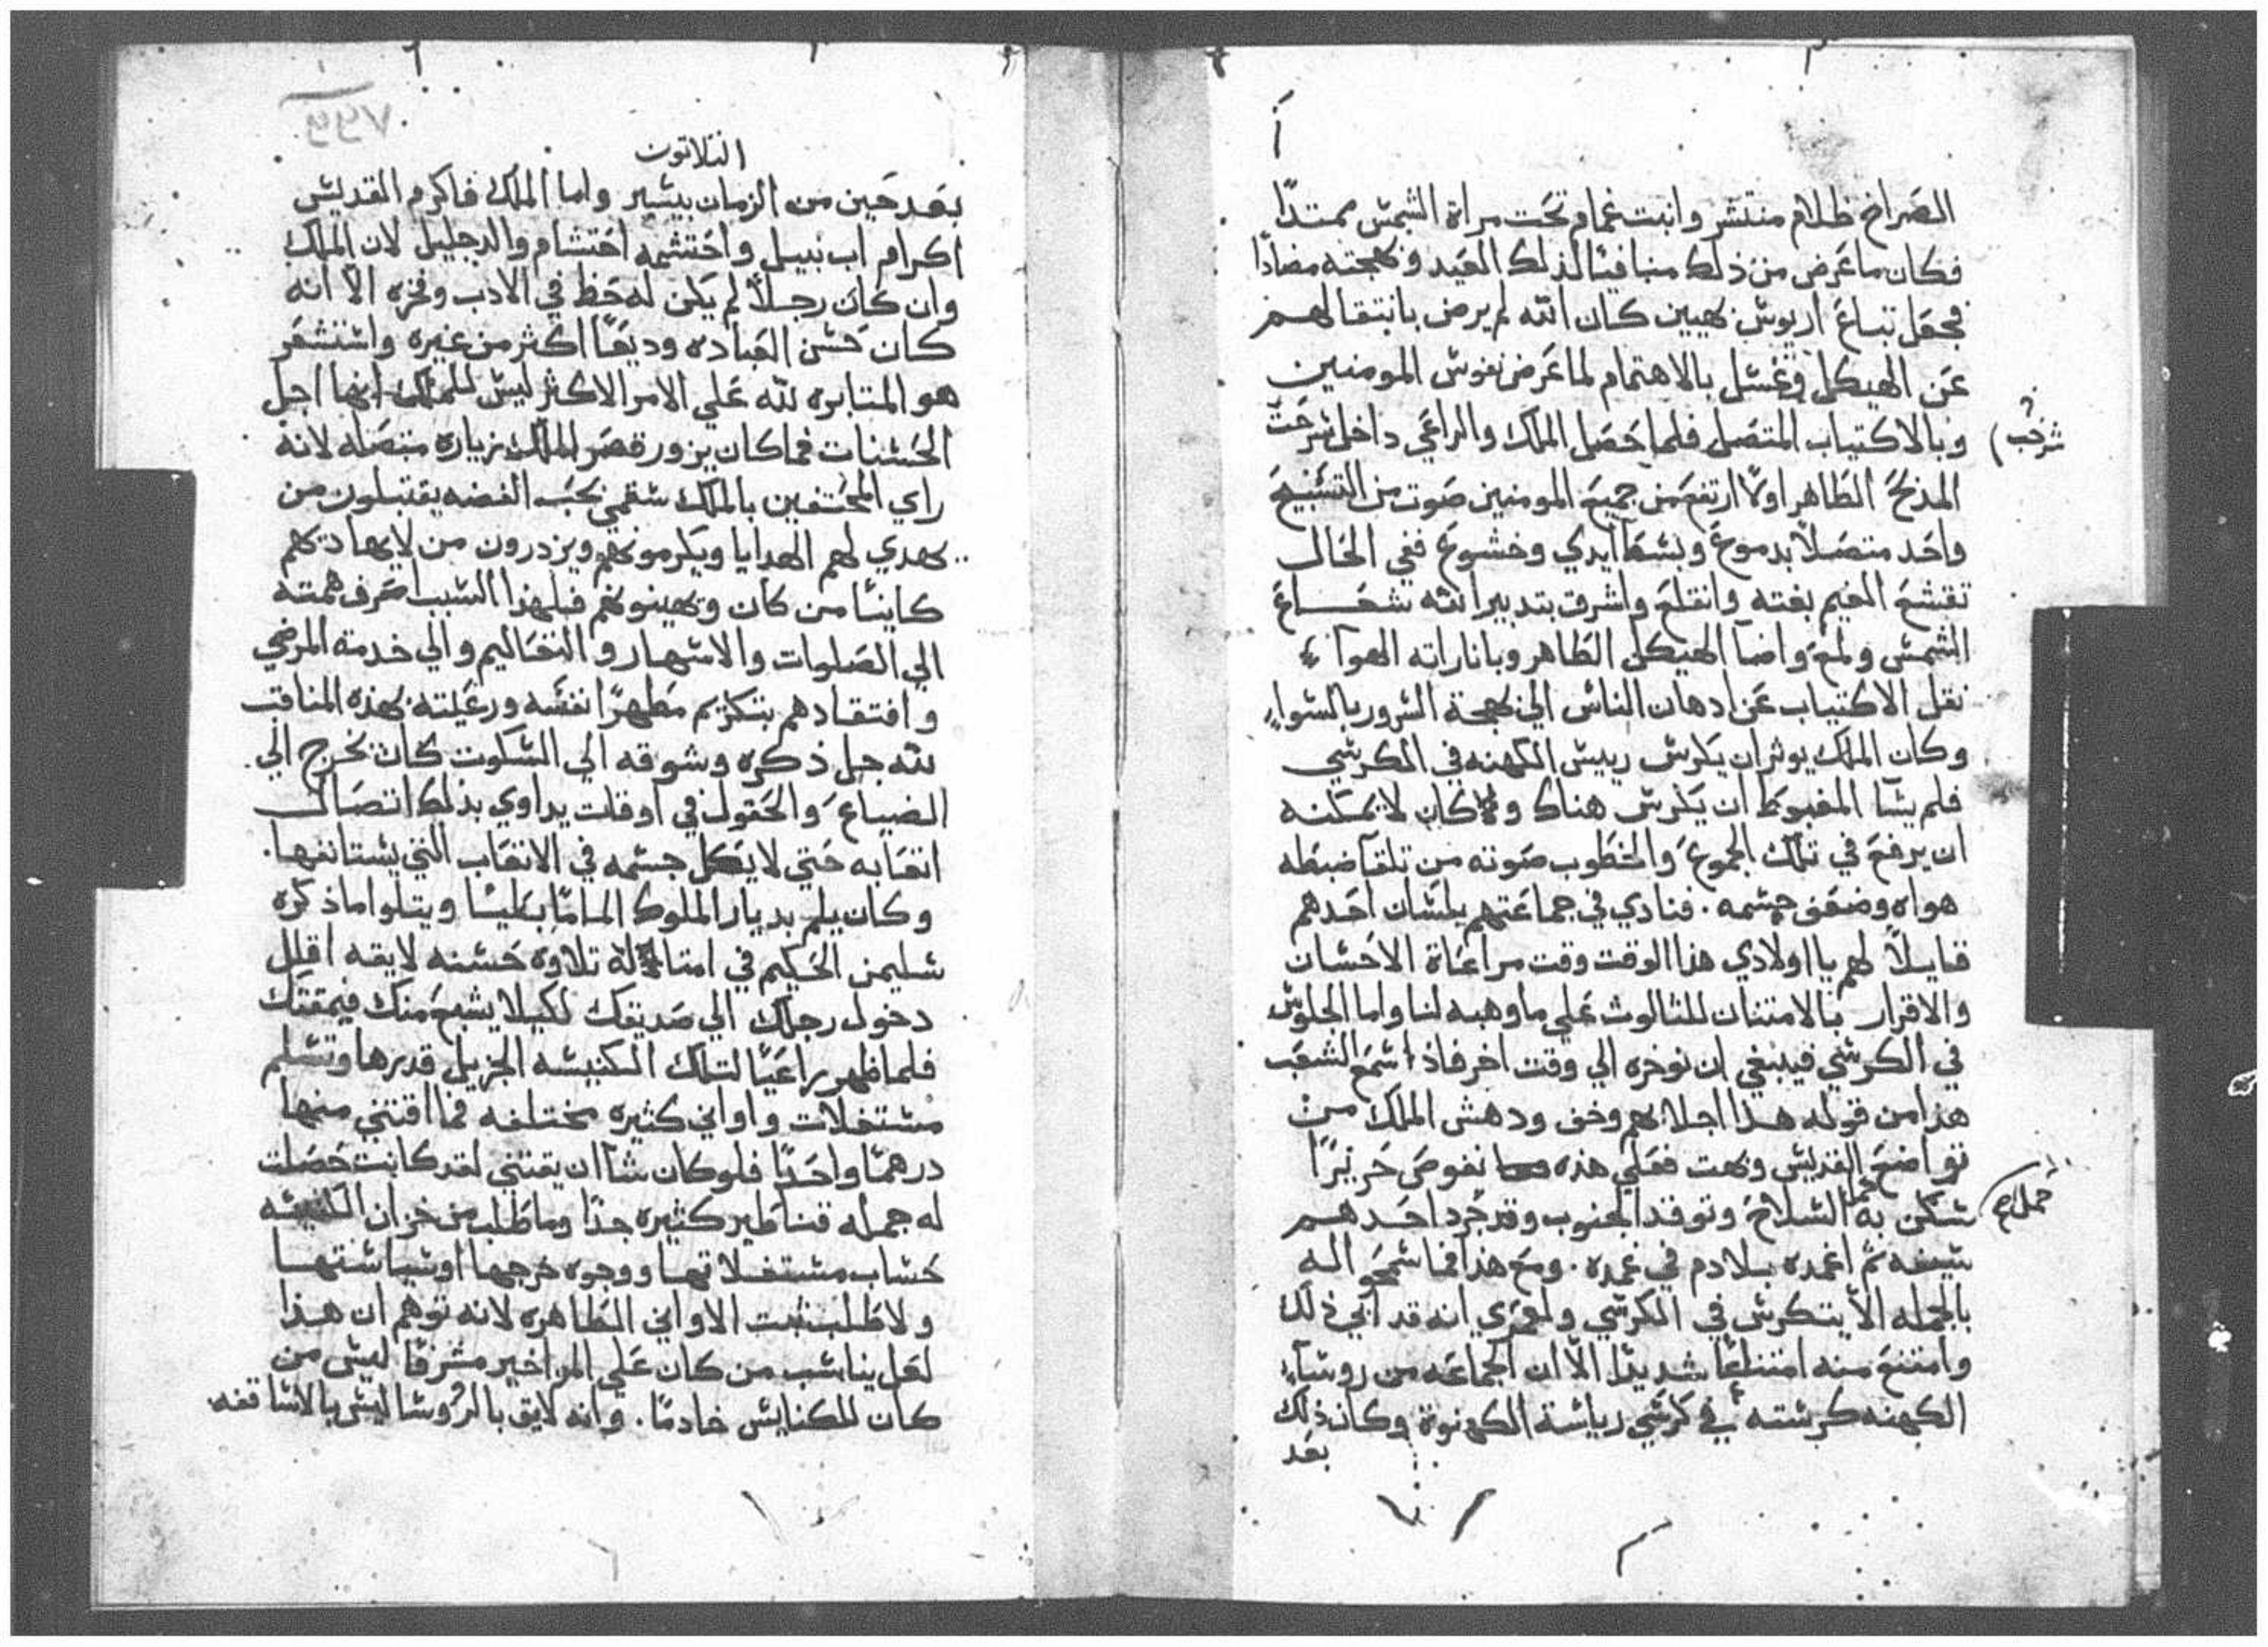 الصراخ ظلام منتشر وانبت غمام تحت مراة الشمس ممتدًا
فكان ما عرض من ذلك منافيًا لذلك العيد وبهجته مضادًا
فجعل تباع اريوس بهيين كان الله لم يرض بانتقالهم
عن الهيكل وغسل بالاهتمام لما عرض نفوس المومنين
وبالاكتياب المتصل فلما حصل الملك والراعي داخل شرحت
شرحب
المذبح الطاهر اولًا ارتفع من جميع المومنين صوت من التسبيح
واحد متصلًا بدموع وبسط ايدي وخشوع ففي الحال
تقشع الغيم بغته وانقلع واشرق بتدبير الله شعاع
الشمس ولمع واضا الهيكل الطاهر وباناراته الهوآ
نقل الاكتياب عن ادهان الناس الي بهجة السرور بالسوا
وكان الملك يوثر ان يكرس رييس الكهنه في الكرسي
فلم يشا المغبوط ان يكرس هناك ولا كان لا يمكنه
ان يرفع في تلك الجموع والخطوب صوته من تلقآ ضبطه
هواه وضعف جسمه . فنادي في جماعتهم بلسان احدهم
قايلًا لهم يا اولادي هذا الوقت وقت مراعاة الاحسان
والاقرار بالامتنان للثالوث علي ما وهبه لنا واما الجلوس
في الكرسي فينبغي ان نوخره الي وقت اخر فاذ اسمع الشعب
هذا من قوله هذا اجلابهم وخف ودهش الملك من
تواضع القديس وبهت ففعلي هذه نفوض حريرًا
سكن به حما السلاح وتوقد الجنوب وقد جرد احدهم
حملاح
سيفه ثم اغمده بلا دم في غمده . ومع هذا فما سمحو اله
بالجمله الا يتكرس في الكرسي ولعمري انه قد ابي ذلك
وامتنع منه امتناعًا شديدًا الّا ان الجماعه من روسآ
الكهنه كرسته في كرسي رياسة الكهنوة وكان ذلك
بعد
الثلاثون
بعد حين من الزمان بيسير واما الملك فاكرم القديس
اكرام اب نبيل واحتشمه احتشام والد جليل لان الملك
وان كان رجلًا لم يكن له حظ في الادب وفخره الّا انه
كان حسن العباده وديعًا اكثر من غيره واستشعر
هو المتابره لله علي الامر الاكثر ليس للملك انها اجل
الحسنات فما كان يزور قصر الملك زياره متصله لانه
راي المحتفين بالملك سقمي بحب الفضه يقتبلون من
يهدي لهم الهدايا ويكرمونهم ويزدرون من لا يهاديهم
كاينًا من كان ويهينونهم فبلهذا السبب صرف همته
الي الصلوات والاسهار والتعاليم والي خدمة المرضي
وافتقادهم بتكريم مطهرًا نفسه ورعيته بهذه المناقب
لله جل ذكره وشوقه الي السكوت كان يخرج الي
الضياع والحقول في اوقات يداوي بذلك اتصال
اتعابه حتي لا يكل جسمه في الاتعاب التي يستانفها .
وكان يلم بديار الملوك المامًا بطيًا ويتلوا ما ذكره
سليمن الحكيم في امتاله تلاوة حسنه لايقه اقلل
دخول رجلك الي صديقك لكيلا يشبع منك فيمقتك
فلما ظهر راعيًا لتلك الكنيسه الجزيل قدرها وتسلم
مستغلات واواني كثيره مختلفه فما اقتني منها
درهمًا واحدًا فلو كان شآ ان يقتني لقد كانت حصلت
له جمله قناطير كثيره جدًا وما طلب من خزان الكنيسه
حساب مستغلاتها ووجوه خرجها او سياستها
ولا طلبت الاواني الطاهره لانه توهم ان هذا
لعل يناسب من كان علي امر اخير مشرفًا ليس من
كان للكنايس خادمًا . وانه لايق بالروسا ليس بالاساقفه